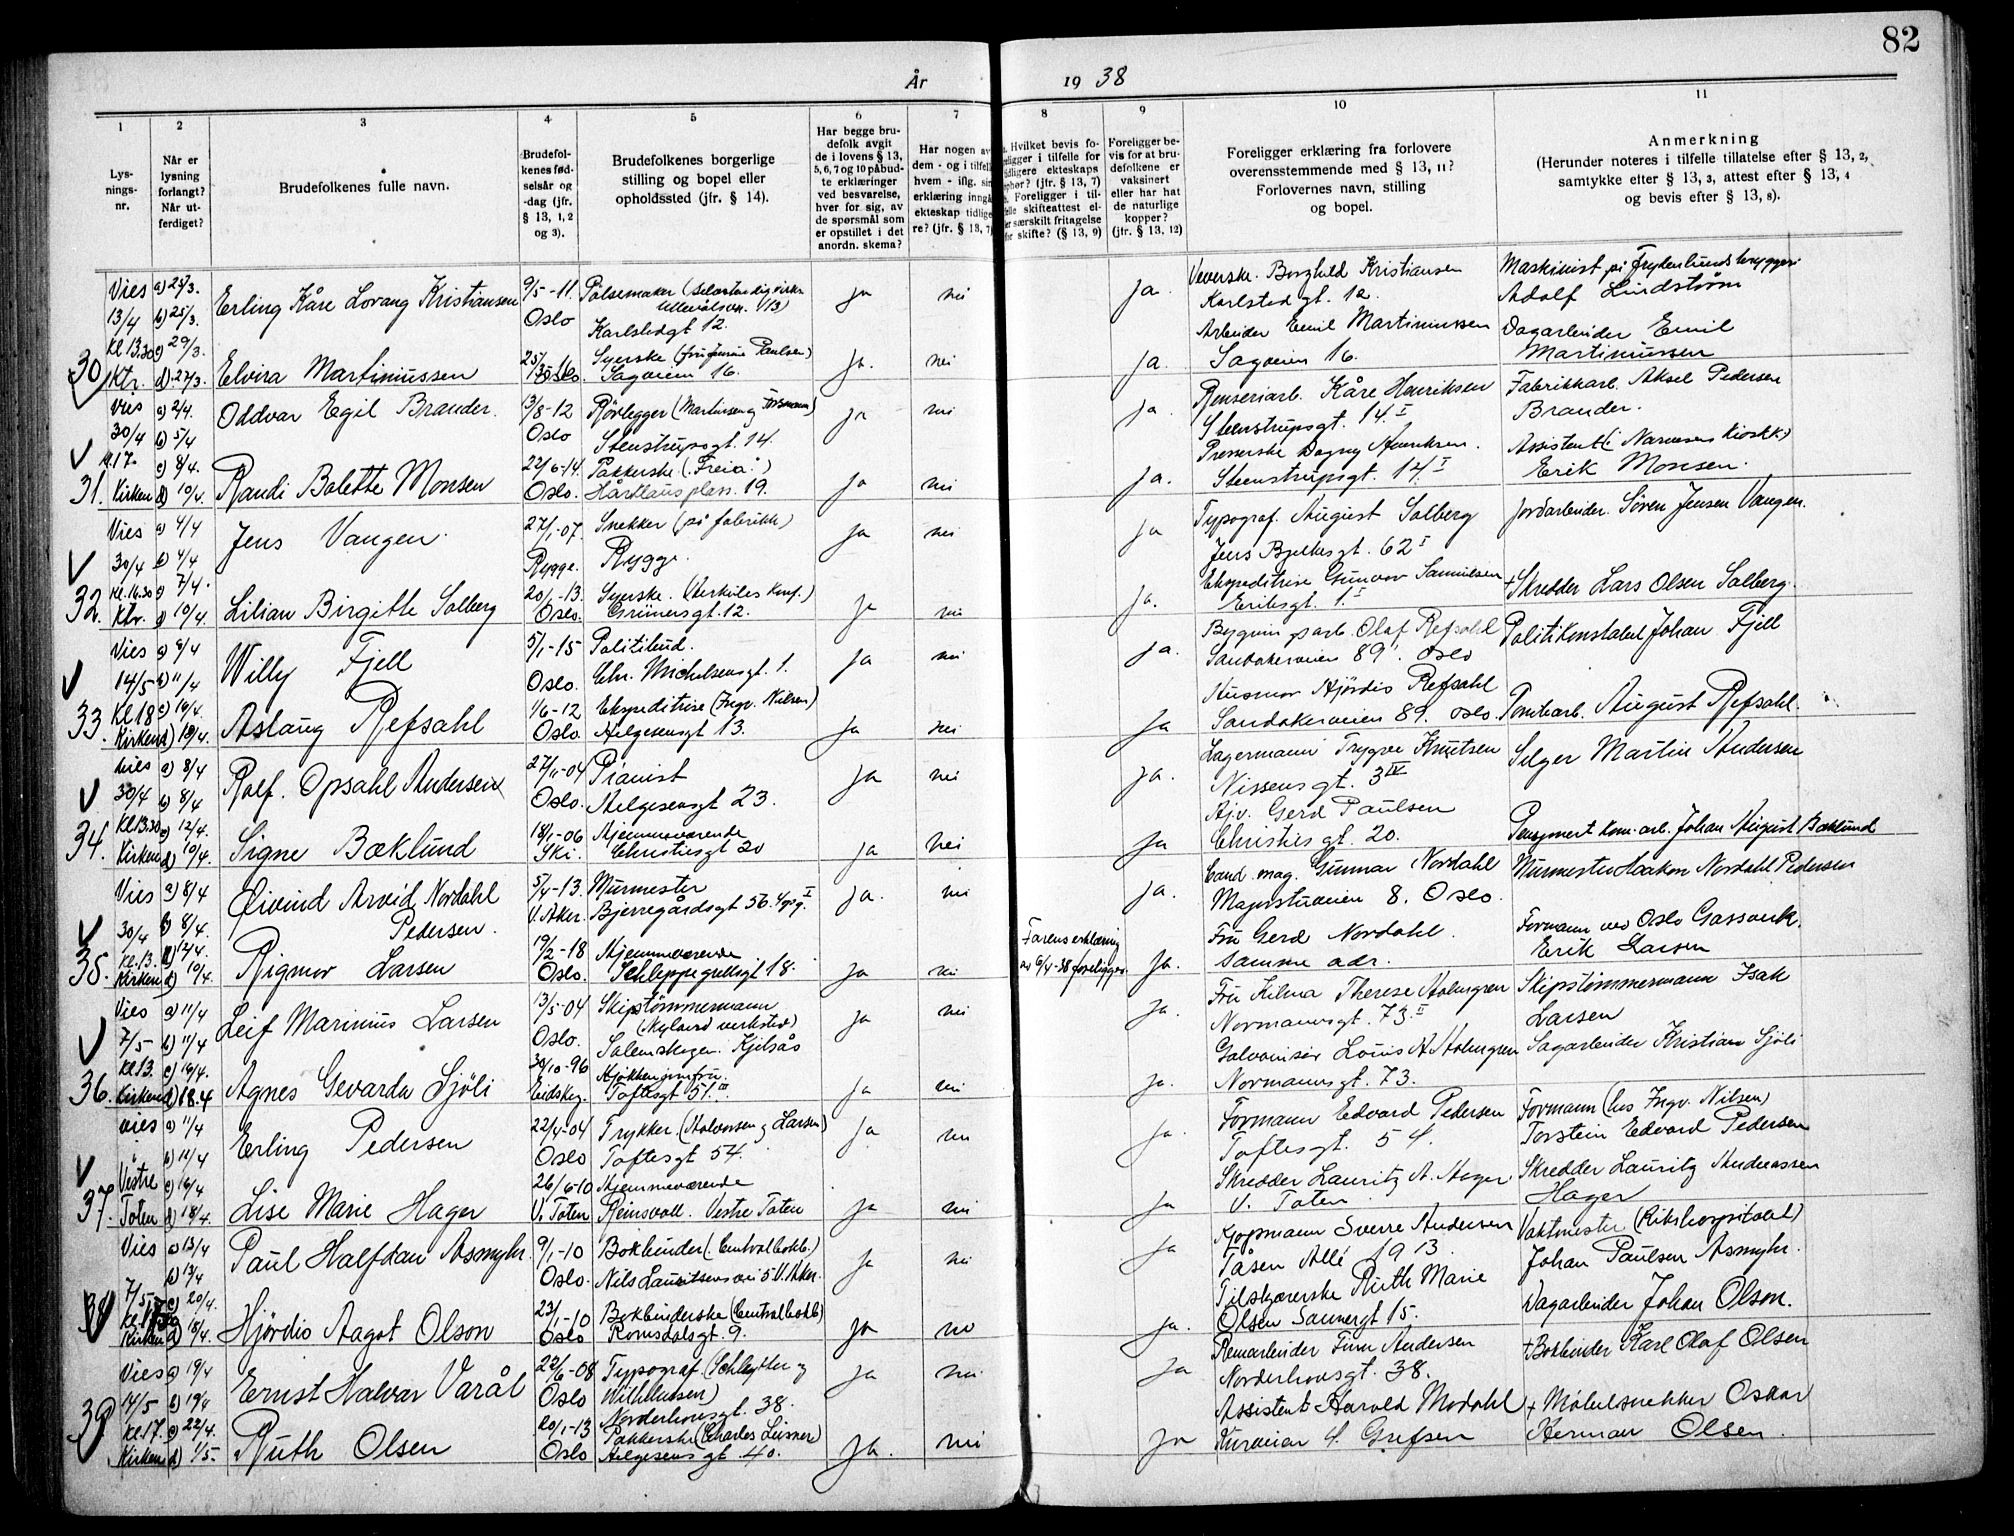 82
År 1938
1
2
3
4
5
6
7
8
9
10
11
Lys-
nings-
nr.
Når er
lysning
forlangt?
Når ut-
ferdiget?
Brudefolkenes fulle navn.
Brudefol-
kenes fød-
selsår og
-dag (jfr.
§ 13, 1, 2
og 3).
Brudefolkenes borgerlige
stilling og bopel eller
opholdssted (jfr. § 14).
Har begge bru-
defolk avgit
de i lovens § 13,
5, 6, 7 og 10 påbud-
te erklæringer
ved besvarelse,
hver for sig, av
de spørsmål som
er opstillet i det
anordn. skema?
Har nogen av
dem - og i tilfelle
hvem - iflg. sin
erklæring inngå
ekteskap tidlige
re? (jfr. § 13, 7)
Hvilket bevis fo-
religger i tilfelle for
tidligere ekteskaps
ophør? (jfr. § 13, 7)
Foreligger i til-
felle skifteattest el-
ler særskilt fritagelse
for skifte? (§ 13, 9)
Foreligger be-
vis for at bru-
defolkene er
vaksinert
eller har hat
de naturlige
kopper?
(jfr. § 13, 12)
Foreligger erklæring fra forlovere
overensstemmende med § 13, 11?
Forlovernes navn, stilling
og bopel.
Anmerkning
(Herunder noteres i tilfelle tillatelse efter § 13, 2,
samtykke efter § 13, 3, attest efter § 13, 4
og bevis efter § 13, 8).
30
Vies 13/4 Kl 13.30 Ktr.
a) 25/3. b) 25/3. c) 29/3. d) 27/3.
Erling Kåre Lorang Kristiansen
9/5-11. Oslo
Pølsemaker
Karlstadgt 12.
ja nei ja.
Veverske Borghild Kristiansen
Karlstadgt. 12.
Maskinist på Frydenlunds bryggeri
Adolf Lindstrøm
Elvira Martiniussen
Syerske
Sagveien 16.
ja. nei ja.
Arbeider Emil Martiniussen
Sagveien 16.
Dagarbeider Emil
Martiniussen
31.
Vies 30/4 kl. 17. Kirken
a) 2/4. b) 5/4 c) 8/4. d) 10/4.
Oddvar Egil Brander.
3/8-12 Oslo
Rørlegger
Stenstrupsgt. 14.
ja nei ja.
Renseriarb. Kåre Henriksen
Stenstrupsgt. 14 I
Fabrikkarb. Aksel Pedersen
Brander.
Randi Bolette Monsen
22/6-14. Oslo.
Pakkerske ("Freia")
plass. 19.
ja nei ja.
Presserske Dagny Henriksen.
Stenstrupsgt. 14 I
Assistent (Narvesens Kiosk k.)
Erik Monsen.
32.
Vies 30/4 Kl. 16.30 Ktr.
a) 4/4 b) 4/4 c) 7/4. d) 10/4.
Jens Vangen.
27/1-07. Rygge.
Snekker (på fabrikk)
Rygge.
ja nei ja
Typograf. August Solberg
Jens Bjelkesgt. 62 I
Jordarbeider. Søren Jensen Vangen.
Lilian Birgitte Solberg
20/1-13. Oslo.
Syerske. (Herkules Konf.)
Grünersgt. 12.
ja nei ja.
Ekspeditrise Gunvor Samuelsen
Eriksgt. 1 I
+ Skredder Lars Olsen Solberg.
33.
Vies 14/5 Kl 18 Kirken
a) 8/4 b) 11/4 c) 16/4. d) 18/4.
Willy Fjell
5/1-15 Oslo.
Politibud.
Chr. Michelsensgt. 1.
ja nei ja.
Olaf Refsahl
Sandakerveien 89. Oslo
Politikonstabel Johan Fjell
Aslaug Refsahl
1/6-12 Oslo.
Ekspeditrise (Ingv. Nilsen)
Helgesensgt 13.
ja nei ja
Husmor Hjördis Refsahl
Sandakerveien 89. Oslo.
Tomtearb. August Refsahl.
34.
Vies 30/4 Kl 13.30 Kirken
a) 8/4 b) 8/4 c) 12/4. d) 10/4.
Rolf. Opsahl Andersen
27/11-04 Oslo.
Pianist
Helgesensgt 23.
ja nei ja.
Lagermann Trygve Knutsen
Nissensgt. 3 IV
Selger Martin Andersen
Signe Bæklund
18/1-06 Ski.
Hjemmeværende
Christiesgt 20
ja nei ja
Hjv. Gerd Paulsen
Christiesgt. 20.
Pensjonert kom. arb. Johan August Bæklund
35.
Vies 30/4 kl. 13. Kirken
a) 8/4 b) 8/4. c) 12/4. d) 10/4.
Øivind Arvid Nordahl
Pedersen.
5/4-13. V. Aker.
Murmester
Bjerregårdsgt 56. 4 opg. I
ja. nei ja.
Cand. mag. Gunnar Nordahl
Majorstuveien 8. Oslo.
Murmester Haakon Nordahl Pedersen
Rigmor Larsen
19/2-18 Oslo.
Hjemmeværende
Schleppegrellsgt 18.
ja nei
Farens erklæring
av 6/4-38 foreligger.
ja.
Fru Gerd Nordahl.
samme adr.
Formann ved Oslo Gassverk.
Erik Larsen
36.
Vies 7/5 Kl 13. Kirken
a) 11/4 b) 11/4 c) 16/4. d) 18.4
Leif Marinius Larsen
13/5-04 Oslo.
Skipstømmermann
(Nylands verksted)
Solemskogen. Kjelsås
ja nei ja.
Fru Hilma Therese Holmgren
Normannsgt. 73. II
Skipstømmermann Isak
Larsen
Agnes Gevarda Sjöli
30/10-96 Eidskog.
Kjøkkenjomfru.
Toftesgt 51. III
ja nei ja.
Galvanisør Louis A Holmgren
Normannsgt. 73.
Sagarbeider Kristian Sjöli
37.
Vies i Vestre Toten
a) 11/4 b) 11/4 c) 16/4 d) 18/4.
Erling Pedersen
22/4-04 Oslo
Trykker. (Halvorsen og Larsen)
Toftesgt 54.
ja nei ja.
Formann Edvard Pedersen
Toftesgt. 54.
Formann (hos Ingv. Nilsen)
Torstein Edvard Pedersen
Lise Marie Hager
26/6-10 V. Toten
Hjemmeværende
Reinsvoll. Vestre Toten
ja nei ja
Skredder Lauritz A. Hager.
V. Toten
Skredder Lauritz Andreassen
Hager
38
Vies 7/5 Kirken
a) 13/4 b) 13/4 c) 20/4. d) 18/4.
Paul Halfdan Asmyhr.
9/1-10 Oslo.
Bokbinder (Centralbokb.)
Nils Lauritsens vei 5 V. Aker.
ja nei ja
Kjøpmann Sverre Andersen
Tåsen Allé 19 13
Vaktmester (Rikshospitalet)
Johan Paulsen Asmyhr.
Hjördis Aagot Olson
23/1-10 Oslo
Bokbinderske (Centralbokb)
Romsdalsgt. 9.
ja nei ja.
Tilskjærerske Ruth Marie
Olsen Sannergt 15.
Dagarbeider Johan Olson.
39
Vies 14/5 Kl 17. Kirken
a) 19/4 b) 19/4 c) 22/4. d) 1/5-
Ernst Halvar Varål
22/6-08 Oslo
Typograf. (Schlytter og
Wilhelmsen)
Norderhovsgt. 38.
ja nei ja
Remarbeider Finn Andersen
Norderhovsgt. 38.
+ Bokbinder Karl Olaf Olsen
Ruth Olsen
20/1-13 Oslo
Pakkerske (Charles Leisner)
Helgesensgt. 40.
ja. nei ja
Assistent Harold Modahl
Kurveien 4. Grefsen
+ Møbelsnekker Oskar
Herman Olsen.